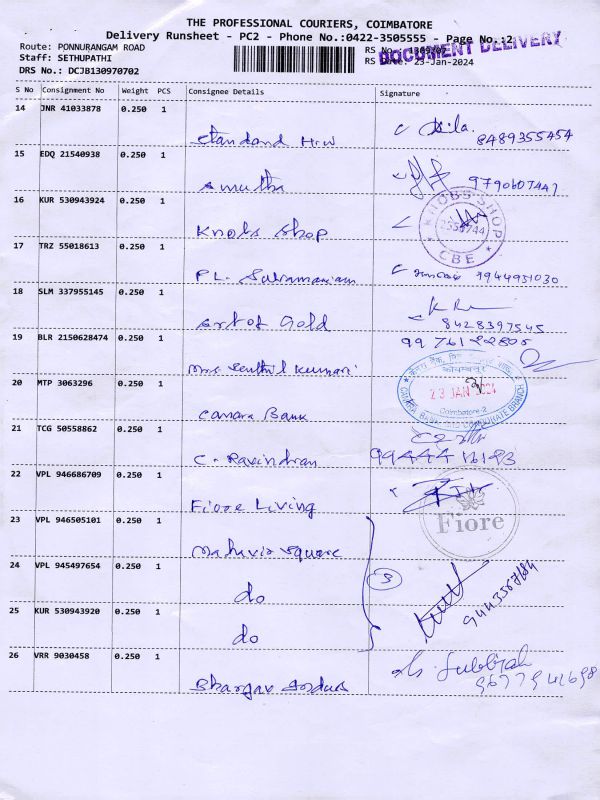 THE PROFESSIONAL COURIERS, COIMBATORE
Delivery Runsheet - PC2 - Phone No.:0422-3505555 - Page No.:2
Route: PONNURANGAM ROAD
Staff: SETHUPATHI
DRS No.: DCJB130970702
RS No.:
RS Date: 23-Jan-2024
DOCUMENT DELIVERY
S No Consignment No Weight PCS Consignee Details Signature
14 JNR 41033878 0.250 1
8489355454
15 EDQ 21540938 0.250 1
Amutha
16 KUR 530943924 0.250 1
Knobs Shop
KNOBS SHOP
CBE
17 TRZ 55018613 0.250 1
PL. Subramaniam
18 SLM 337955145 0.250 1
Art of Gold
8428397545
19 BLR 2150628474 0.250 1
Mrs Senthil Kumari
20 MTP 3063296 0.250 1
Canara Bank
23 JAN 2024
Coimbatore-2
21 TCG 50558862 0.250 1
C. Ravindran
22 VPL 946686709 0.250 1
Fiore Living
Fiore
23 VPL 946505101 0.250 1
Mahavir Square
24 VPL 945497654 0.250 1
do
3
25 KUR 530943920 0.250 1
do
26 VRR 9030458 0.250 1
Subbiah